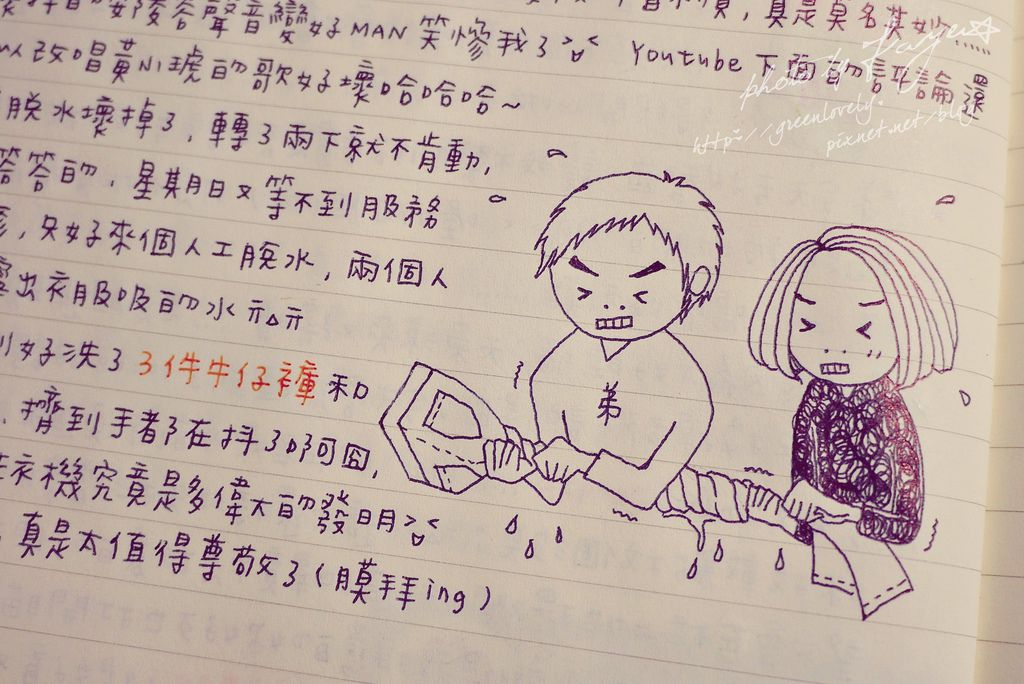 真是莫名其妙……
聲音變好MAN 笑慘我了>o< Youtube下面的評論還
以改唱黃小琥的歌好壞哈哈哈~
脫水壞掉了,轉了兩下就不肯動,
答答的,星期日又等不到服務
只好來個人工脫水,兩個人
出衣服吸的水示
好洗了3件牛仔褲和
擠到手都在抖了啊囧,
衣機究竟是多偉大的發明>o<
真是太值得尊敬了(膜拜ing)
弟
photo by Kayu☆
http://greenlovely.
pixnet.net/blog